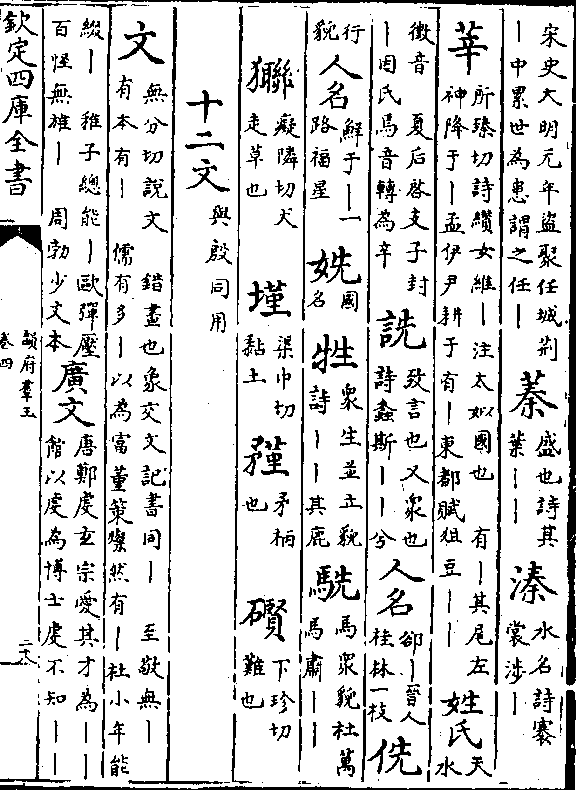 宋史大明元年盜聚任城荆
｜中累世為患謂之任｜ 蓁 盛也詩其葉｜｜ 溱 水名詩褰裳涉｜
莘 所臻切詩纘女維｜注太姒國也 有｜其尾左
神降于｜孟伊尹耕于有｜東都賦俎豆｜｜ 姓氏 天水
徵音 夏后啓支子封
｜因氏馬音轉為辛 詵 致言也又衆也詩螽斯｜｜兮 人名 郤｜晉人桂林一枝 侁
行貌 人名 鮮于｜一路福星 姺 國名 甡 衆生並立貌詩｜｜其鹿 駪 馬衆貌杜萬馬肅｜｜
獜 癡隣切犬走草也 墐 渠巾切黏土 矜 矛柄也 礥 下珍切難也
十二文 與殷同用
文 無分切說文 錯畫也象交文記書同｜ 至敬無｜
有本有｜ 儒有多｜以為富董策燦然有｜杜小年能
綴｜ 稚子總能｜歐彈壓
百怪無雄｜ 周勃少文本 廣文 唐鄭虔玄宗愛其才為｜｜館以虔為博士虔不知｜｜
欽定四庫全書
韻府羣玉
卷四